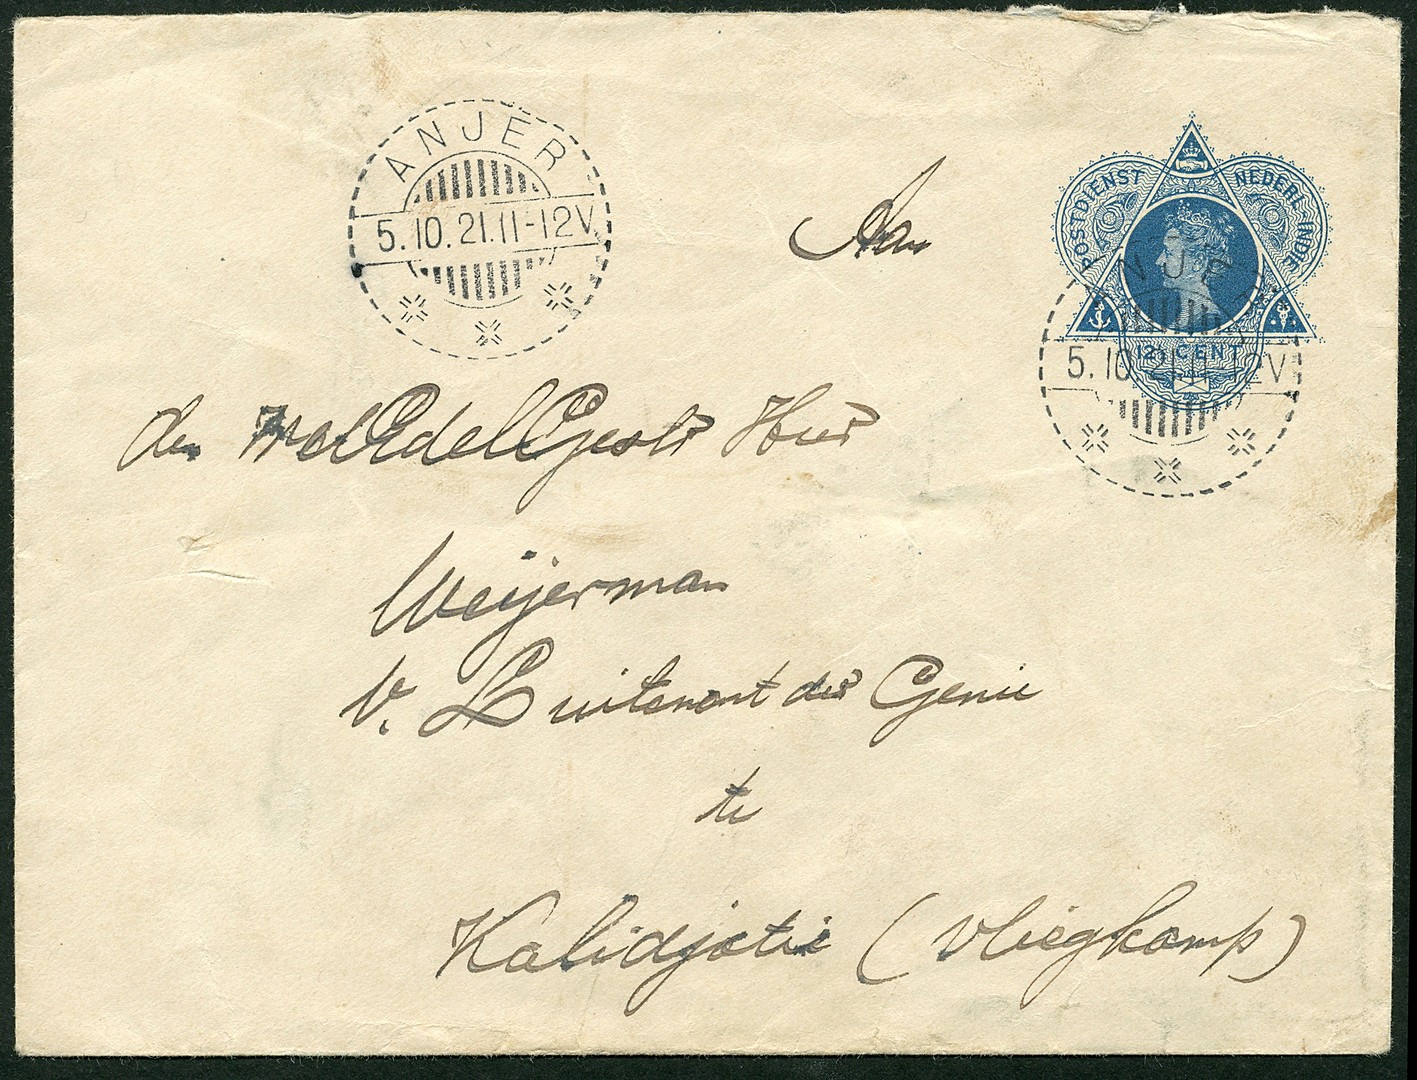 ANJER
5.10.21.11-12V
Aan
POSTDIENST NEDERL-INDIË
NJE
5.10.21.11-12V
12½ CENT
den WelEdelGestr Heer
Weijerman
v. Luitenant der Genie
te
Kalidjatie (Vliegkamp)